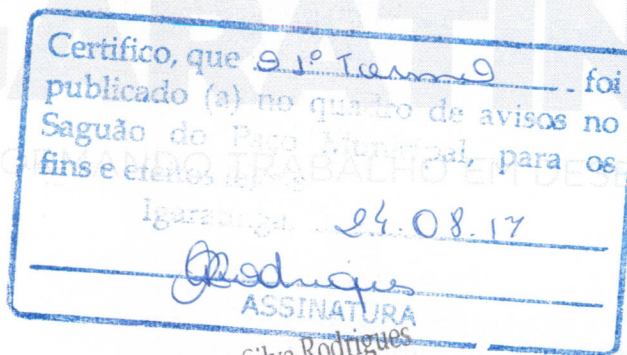 Certifico, que o 1º Termo foi
publicado (a) no quadro de avisos no
Saguão do Paço Municipal, para os
fins e efeitos
24.08.17
Rodrigues
ASSINATURA
Silva Rodrigues
TRABALHO EM DESE